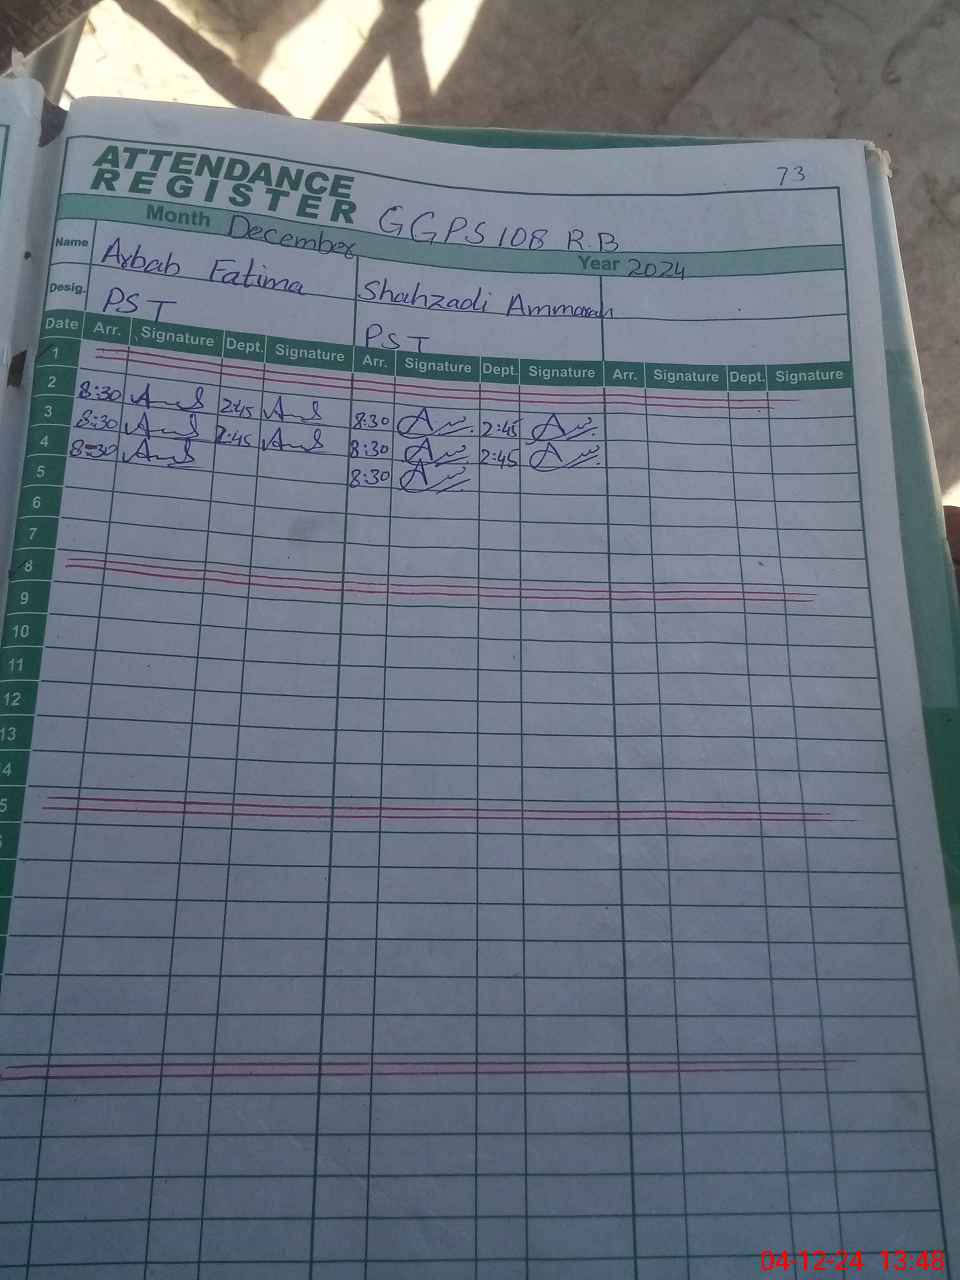 73
ATTENDANCE
REGISTER
GGPS 108 R.B
Month December
Year 2024
Name Arbab Fatima Shahzadi Ammarah
Desig. PST PST
Date Arr. Signature Dept. Signature Arr. Signature Dept. Signature Arr. Signature Dept. Signature
1
2 8:30 2:45 8:30 2:45
3 8:30 2:45 8:30 2:45
4 8:30 8:30
5
6
7
8
9
10
11
12
13
4
5
04-12-24 13:48